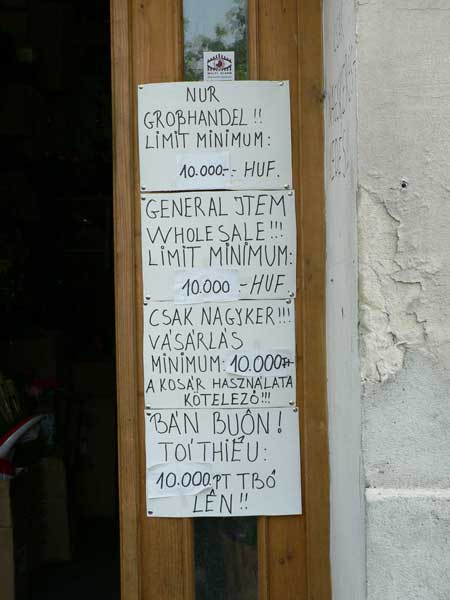 NUR
GROßHANDEL !!
LIMIT MINIMUM:
10.000.-. HUF.
GENERAL JTEM
WHOLESALE!!!
LIMIT MINIMUM:
10.000 .-HUF
CSAK NAGYKER!!!
VÁSÁRLÁS
MINIMUM: 10.000 Ft
A KOSÁR HASZNÁLATA
KÖTELEZŐ!!!
BÁN BUÔN!
TOÍ THIÊU:
10.000.PT TBÓ
LÊN!!